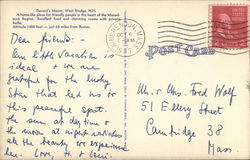 Durant's Manor, West Rindge, N.H.
A home-like place for friendly people in the heart of the Monad-
nock Region. Excellent food and charming rooms with private
baths.
Altitude 1400 feet — just 65 miles from Boston.
Dear friends: -
Our little vacation is
ideal & we are
grateful for the lucky
Star that led us to
this peaceful spot.
The sun at day time &
the moon at night enriches
all the beauty we experience
here. Love,
POST CARD
Mr. & Mrs. Ford Wolf
51 Ellery Street
Cambridge 38
Mass.